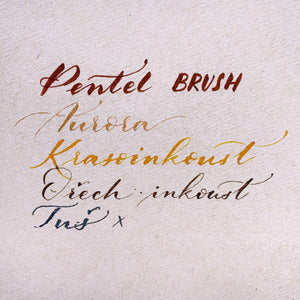 Pentel BRUSH
Aurora
Krasoinkoust
Ořech. inkoust
Tuš x